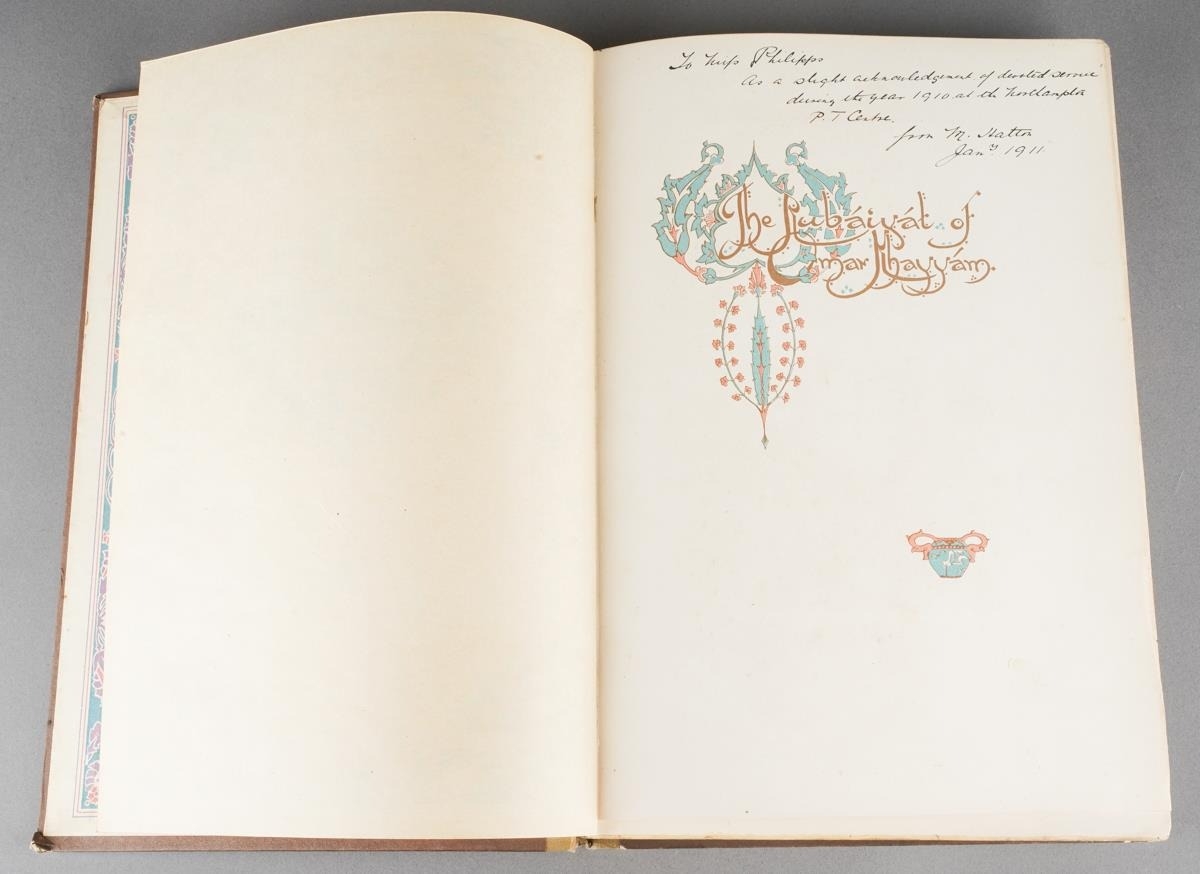 To Miss Philipps
As a slight acknowledgement of devoted service
during the year 1910 at the Northampton
P. T Centre.
from M. Hatton
Jany. 1911
The Rubáiyát of
Omar Khayyám.